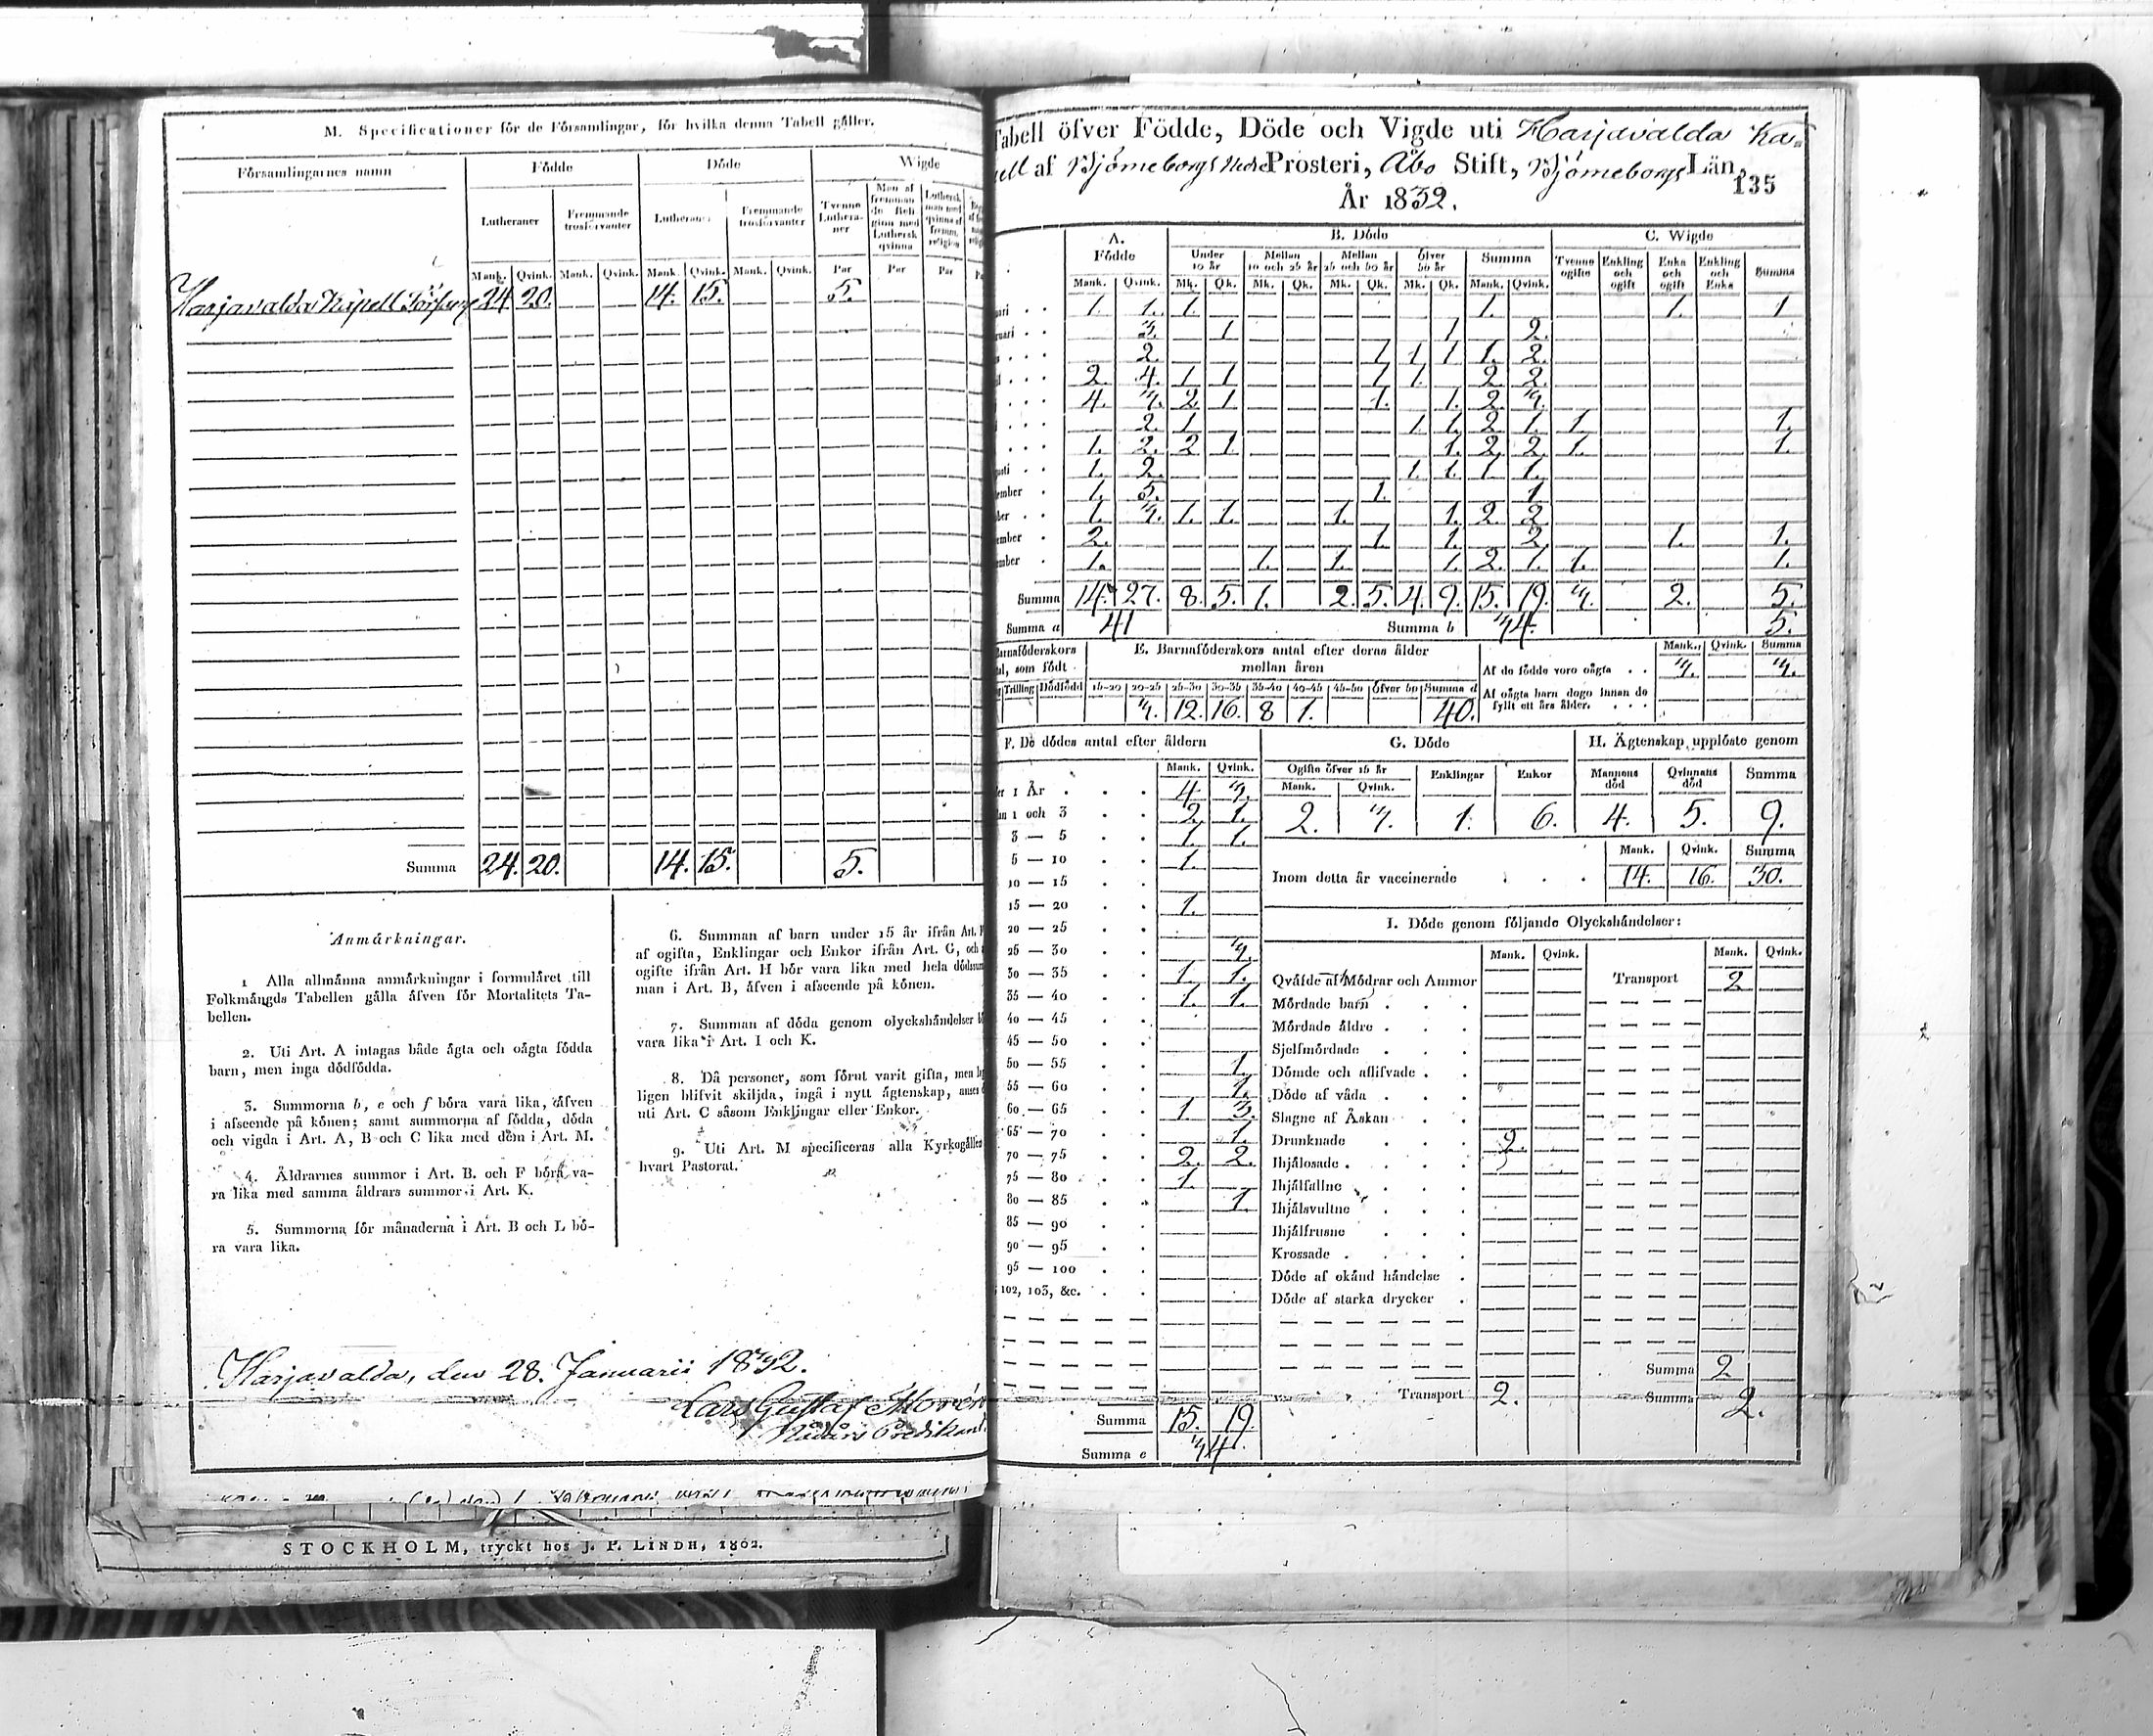 M. Specificationer för de Församlingar, för hvilka denna Tabell gäller.
Församlingarnes namn
Födde
Döde
Wigde
Lutheraner
Fremmande trosförvanter
Lutheraner
Fremmande trosförvanter
Tvenne Lutheraner
Men af fremmande Religion med Luthersk qvinna
Luthersk man med qvinna af fremm. religion
Mank. Qvink. Mank. Qvink. Mank. Qvink. Mank. Qvink. Par Par Par
Harjavalda Kapell 24. 20. 14. 15. 5.
Summa 24. 20. 14. 15. 5.
Anmärkningar.
1 Alla allmänna anmärkningar i formuläret till
Folkmängds Tabellen gälla äfven för Mortalitets Ta-
bellen.
2. Uti Art. A intagas både ägta och oägta födda
barn, men inga dödfödda.
3. Summorna b, e och f böra vara lika, äfven
i afseende på könen; samt summorna af födda, döda
och vigda i Art. A, B och C lika med dem i Art. M.
4. Åldrarnes summor i Art. B. och F böra va-
ra lika med samma åldrars summor i Art. K.
5. Summorna för månaderna i Art. B och L bö-
ra vara lika.
6. Summan af barn under 15 år ifrån Art.
af ogifta, Enklingar och Enkor ifrån Art. G, och
ogifte ifrån Art. H bör vara lika med hela
man i Art. B, äfven i afseende på könen.
7. Summan af döda genom olyckshändelser
vara lika i Art. I och K.
8. Då personer, som förut varit gifta, men
ligen blifvit skiljda, ingå i nytt ägtenskap, anses
uti Art. C såsom Enklingar eller Enkor.
9. Uti Art. M specificeras alla
hvart Pastorat.
Harjavalda, den 28. Januarii 1832.
Lars Gustaf
Predikant
STOCKHOLM, tryckt hos J. P. LINDH, 1802.
Tabell öfver Födde, Döde och Vigde uti Harjavalda Ka-
pell af Björneborgs Nedre Prosteri, Åbo Stift, Björneborgs Län,
135
År 1832.
A. Födde
B. Döde
C. Wigde
Under 10 år
Mellan 10 och 25 år
Mellan 25 och 50 år
öfver 50 år
Summa
Tvenne ogifte
Enkling och ogift
Enka och ogift
Enkling och Enka
Summa
Mank. Qvink. Mk. Qk. Mk. Qk. Mk. Qk. Mk. Qk. Mank. Qvink.
1. 1. 1. 1. 1. 1
3. 1 1 2.
2. 1 1 1 1. 2.
2. 4. 1 1 1 1. 2 2.
4. 4. 2. 1 1. 1. 2 4.
2. 1 1. 1. 2 1. 1. 1.
1. 2. 2 1. 1. 2. 2. 1. 1.
1. 2. 1. 1. 1 1.
ember 1. 5. 1. 1
1. 4. 1. 1. 1. 1. 2. 2
ember 2. 1. 1. 2. 1. 1.
ember 1. 1. 1. 1. 2. 1. 1. 1.
Summa 14. 27. 8. 5. 1. 2. 5. 4. 9. 15. 19. 4. 2. 5.
Summa a 41 Summa b 34. 5.
Barnaföderskors
tal, som födt
Trilling Dödfödd
E. Barnaföderskors antal efter deras ålder
mellan åren
15-20 20-25 25-30 30-35 35-40 40-45 45-50 öfver 50 Summa d
12. 16. 8 1. 40.
Mank. Qvink. Summa
Af de födde voro oägta
Af oägta barn dogo innan de
fyllt ett års ålder.
F. De dödes antal efter åldern
Mank. Qvink.
1 År 4 3.
1 och 3 2. 1.
3 — 5 1. 1.
5 — 10 1.
10 — 15
15 — 20 1.
20 — 25
25 — 30
30 — 35 1. 1.
35 — 40 1. 1.
40 — 45
45 — 50
50 — 55 1.
55 — 60 1.
60 — 65 1 3.
65 — 70 1.
70 — 75 2. 2.
75 — 80 1.
80 — 85 1.
85 — 90
90 — 95
95 — 100
102, 103, &c.
Summa 15. 19.
Summa e 34.
G. Döde
Ogifte öfver 15 år
Enklingar
Enkor
Mank. Qvink.
2. 1. 6.
H. Ägtenskap upplöste genom
Mannens död
Qvinnans död
Summa
4. 5. 9.
Mank. Qvink. Summa
Inom detta år vaccinerade 14. 16. 30.
I. Döde genom följande Olyckshändelser:
Mank. Qvink. Mank. Qvink.
Qväfde af Mödrar och Ammor
Mördade barn
Mördade äldre
Sjelfmördade
Dömde och aflifvade
Döde af våda
Slagne af Åskan
Drunknade 2.
Ihjälosade
Ihjälfallne
Ihjälsvultne
Ihjälfrusne
Krossade
Döde af okänd händelse
Döde af starka drycker
Transport 2.
Transport 2
Summa 2
Summa 2.